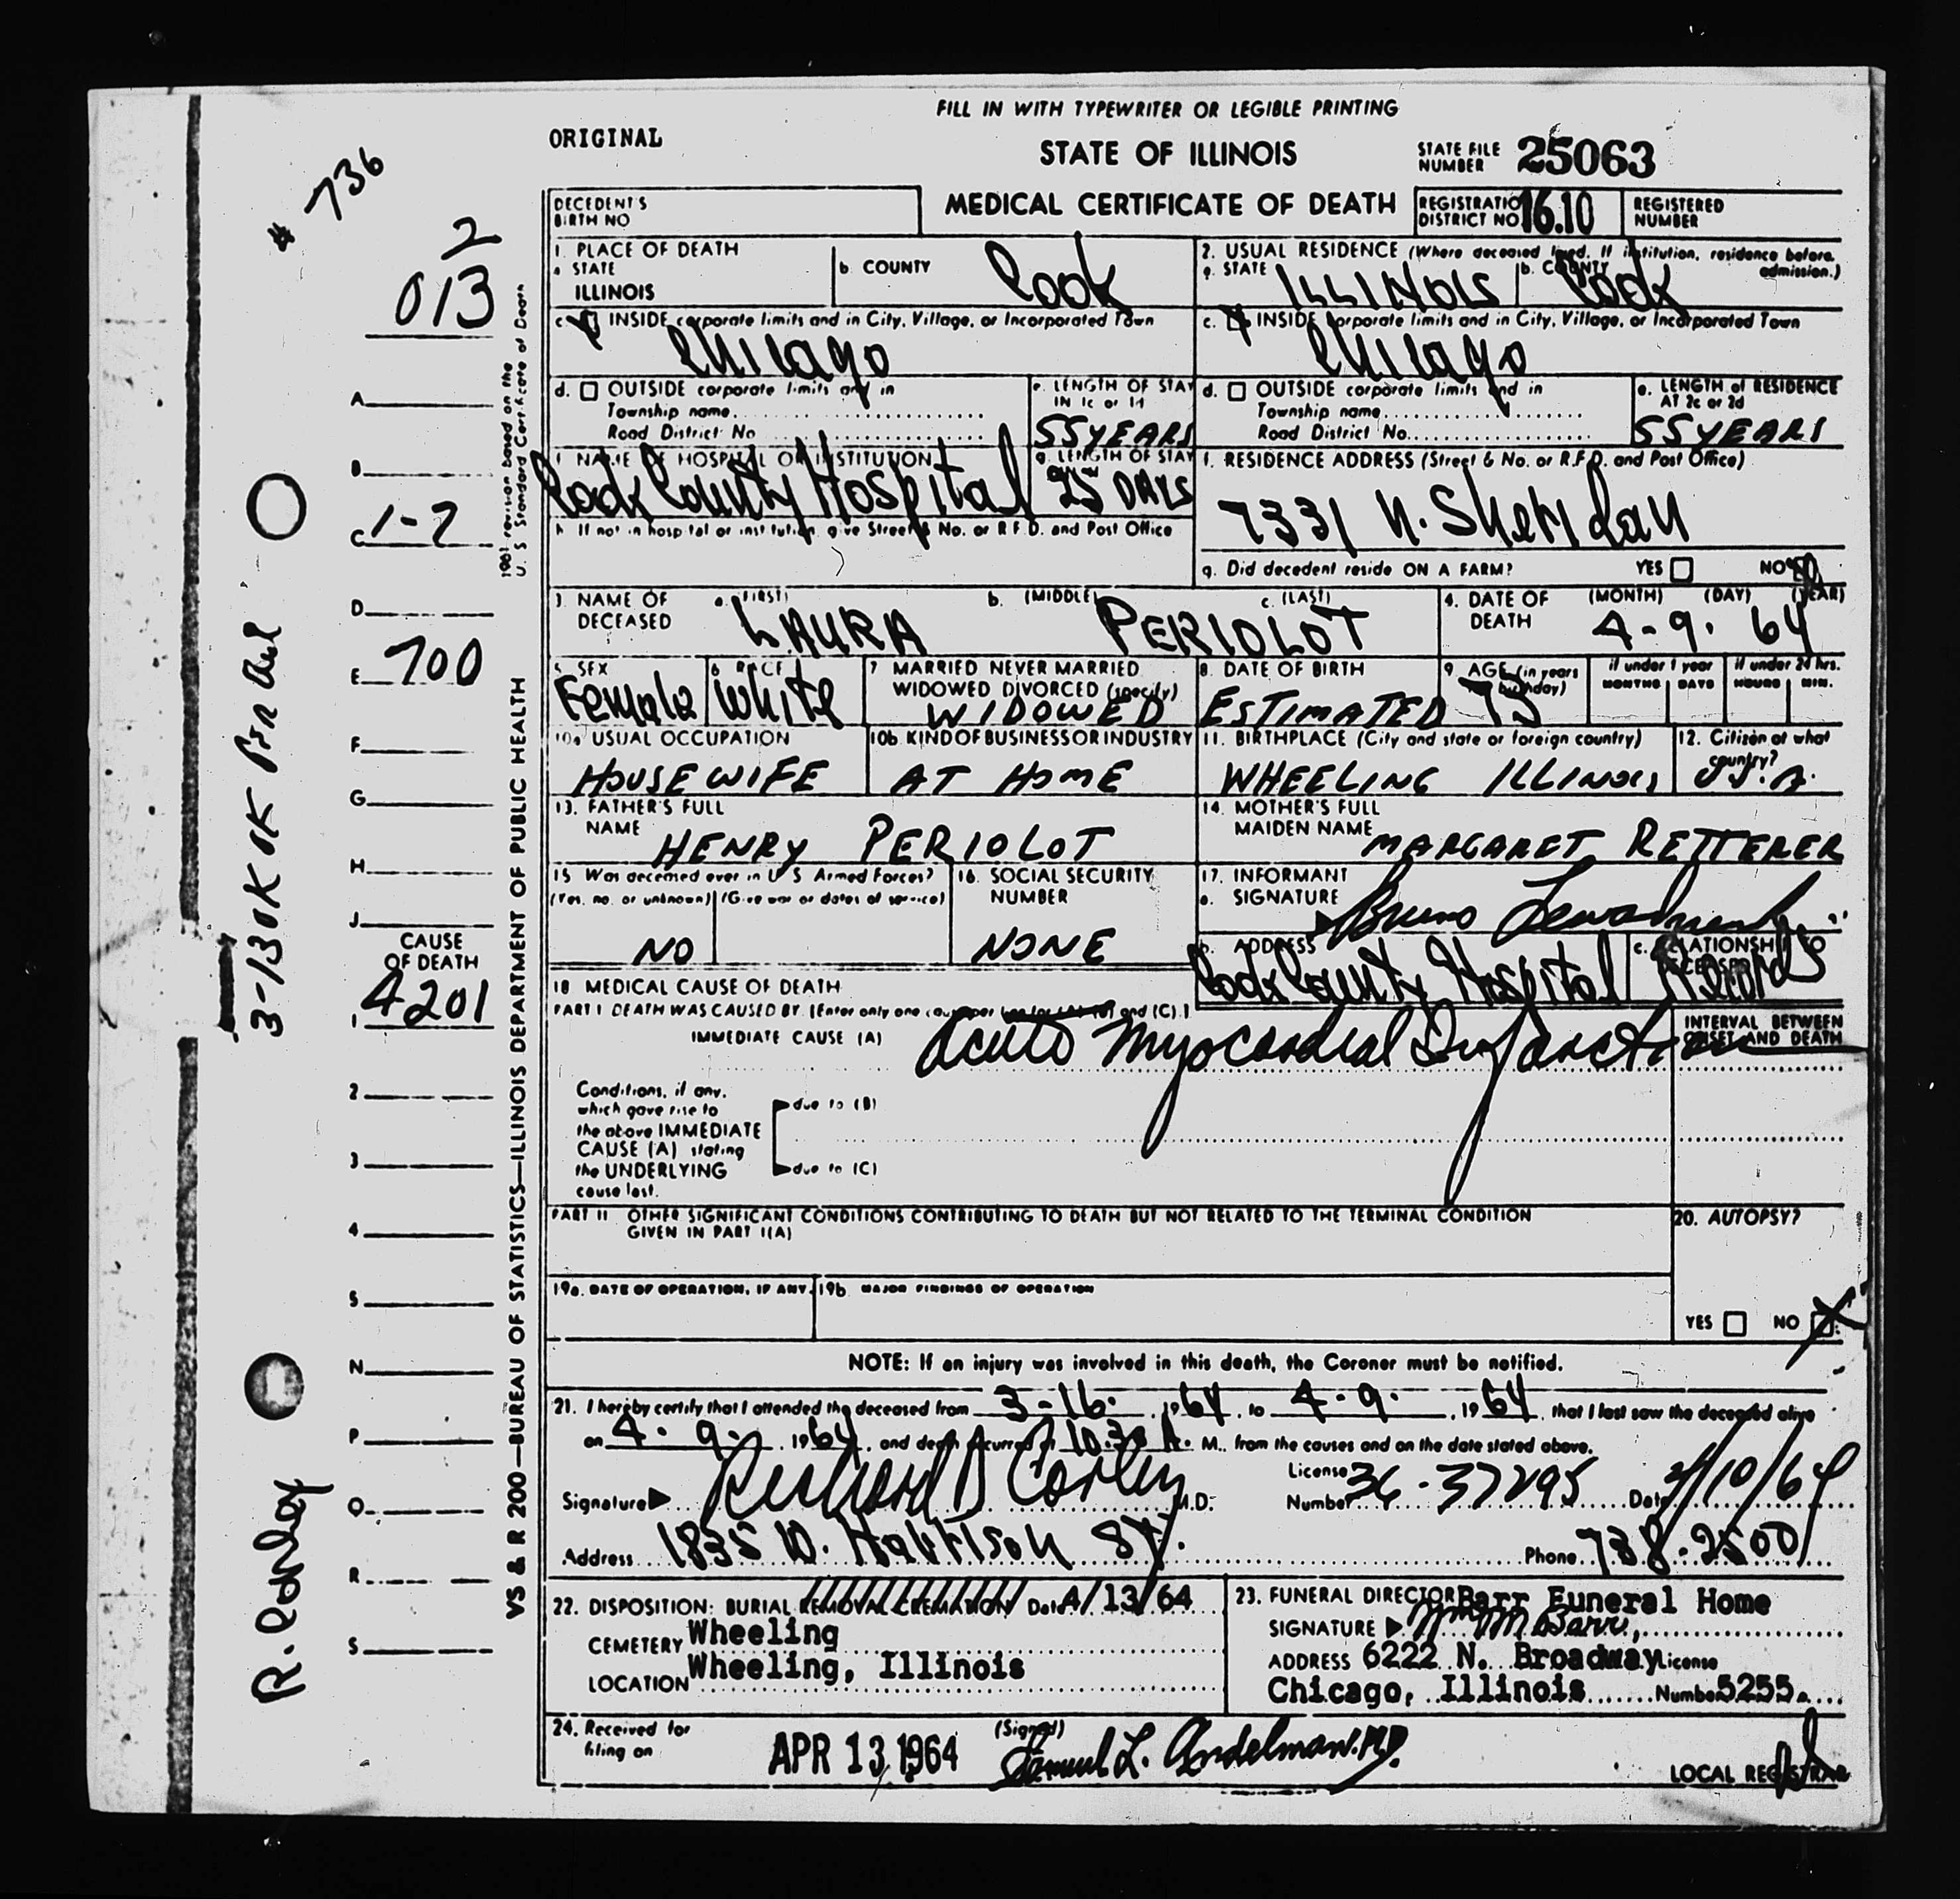 FILL IN WITH TYPEWRITER OR LEGIBLE PRINTING
ORIGINAL
STATE OF ILLINOIS
STATE FILE NUMBER 25063
# 736
DECEDENT'S BIRTH NO
MEDICAL CERTIFICATE OF DEATH
REGISTRATION DISTRICT NO 16.10
REGISTERED NUMBER
2
013
1. PLACE OF DEATH
a STATE
ILLINOIS
b. COUNTY Cook
2. USUAL RESIDENCE (Where deceased lived. If institution, residence before admission.)
a. STATE ILLINOIS
b. COUNTY Cook
c. INSIDE corporate limits and in City, Village, or Incorporated Town
Chicago
c. INSIDE corporate limits and in City, Village, or Incorporated Town
Chicago
d. OUTSIDE corporate limits and in
Township name
Road District No
e. LENGTH OF STAY IN 1c or 1d
55 YEARS
d. OUTSIDE corporate limits and in
Township name
Road District No.
e. LENGTH of RESIDENCE AT 2c or 2d
55 YEARS
f NAME OF HOSPITAL OR INSTITUTION
Cook County Hospital
g. LENGTH OF STAY
25 DAYS
f. RESIDENCE ADDRESS (Street & No. or R.F.D. and Post Office)
7331 N. Sheridan
h If not in hospital or institution give Street & No. or R.F.D. and Post Office
g. Did decedent reside ON A FARM? YES NO
3. NAME OF DECEASED
a. (FIRST) LAURA
b. (MIDDLE)
c. (LAST) PERIOLOT
4. DATE OF DEATH
(MONTH) (DAY) (YEAR)
4-9-64
5 SEX
Female
6 RACE
White
7 MARRIED NEVER MARRIED
WIDOWED DIVORCED (specify)
WIDOWED
8. DATE OF BIRTH
ESTIMATED
9. AGE (in years birthday)
75
if under 1 year
MONTHS DAYS
if under 24 hrs.
HOURS MIN.
10a USUAL OCCUPATION
HOUSEWIFE
10b KIND OF BUSINESS OR INDUSTRY
AT HOME
11. BIRTHPLACE (City and state or foreign country)
WHEELING ILLINOIS
12. Citizen of what country?
U.S.A.
13. FATHER'S FULL NAME
HENRY PERIOLOT
14. MOTHER'S FULL MAIDEN NAME
MARGARET RETTERER
15 Was deceased ever in U S Armed Forces?
(Yes, no, or unknown) (Give war or dates of service)
NO
16. SOCIAL SECURITY NUMBER
NONE
17. INFORMANT
a. SIGNATURE Bruno
b. ADDRESS
Cook County Hospital
c. RELATIONSHIP TO DECEASED
Records
18 MEDICAL CAUSE OF DEATH
PART I DEATH WAS CAUSED BY: [Enter only one cause per line for (A) (B) and (C).]
IMMEDIATE CAUSE (A) Acute Myocardial Infarction
INTERVAL BETWEEN ONSET AND DEATH
Conditions, if any,
which gave rise to
the above IMMEDIATE
CAUSE (A) stating
the UNDERLYING
cause last.
due to (B)
due to (C)
PART II OTHER SIGNIFICANT CONDITIONS CONTRIBUTING TO DEATH BUT NOT RELATED TO THE TERMINAL CONDITION
GIVEN IN PART I(A)
20. AUTOPSY?
YES NO X
19a. DATE OF OPERATION, IF ANY
19b. MAJOR FINDINGS OF OPERATION
NOTE: If an injury was involved in this death, the Coroner must be notified.
21. I hereby certify that I attended the deceased from 3-16- , 1964, to 4-9- , 1964, that I last saw the deceased alive
on 4-9- , 1964, and death occurred at 10:30 A. M., from the causes and on the date stated above.
Signature Richard D Corley M.D.
License Number 36-37295 Date 4/10/64
Address 1835 W. Harrison St. Phone 738-2500
22. DISPOSITION: BURIAL REMOVAL CREMATION Date 4/13/64
CEMETERY Wheeling
LOCATION Wheeling, Illinois
23. FUNERAL DIRECTOR Barr Funeral Home
SIGNATURE Wm M Barr
ADDRESS 6222 N. Broadway
Chicago, Illinois License Number 5255
24. Received for filing on
APR 13 1964
(Signed) Samuel L. Andelman, M.D.
LOCAL REGISTRAR
1961 revision based on the
U. S Standard Certificate of Death
VS & R 200—BUREAU OF STATISTICS—ILLINOIS DEPARTMENT OF PUBLIC HEALTH
A
B
C 1-7
D
E 700
F
G
H
J
CAUSE OF DEATH
4201
1
2
3
4
5
N
P
Q
R
S
3-130K OK
R. Corley